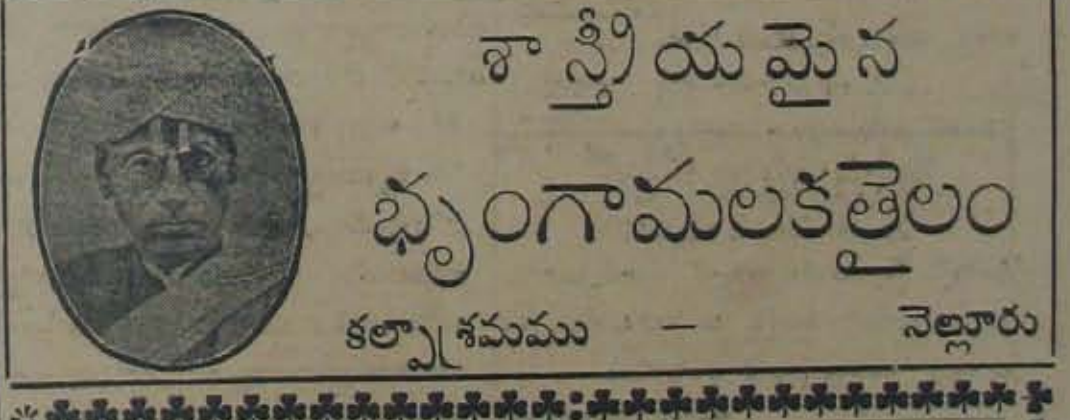 శాస్త్రీయమైన
భృంగామలకతైలం
కల్పాశ్రమము — నెల్లూరు